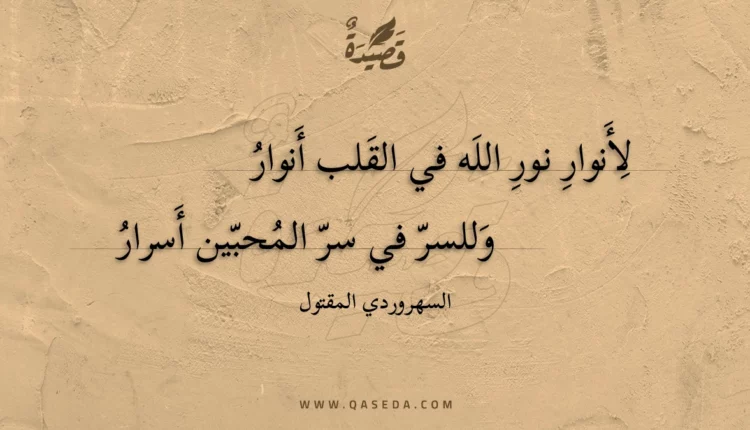 قَصِيْدَةٌ
لِأَنوارِ نورِ اللَه في القَلب أَنوارُ
وَللسرّ في سرّ المُحبّين أَسرارُ
السهروردي المقتول
WWW.QASEDA.COM